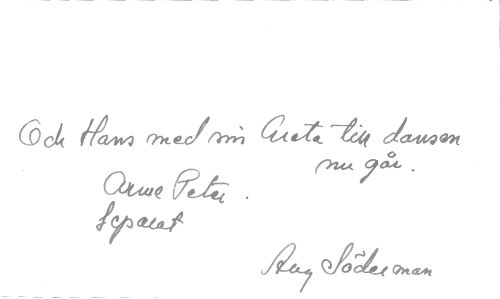 Och Hans med sin Greta till dansen
nu går.
Arme Peter.
Separat
Aug Söderman